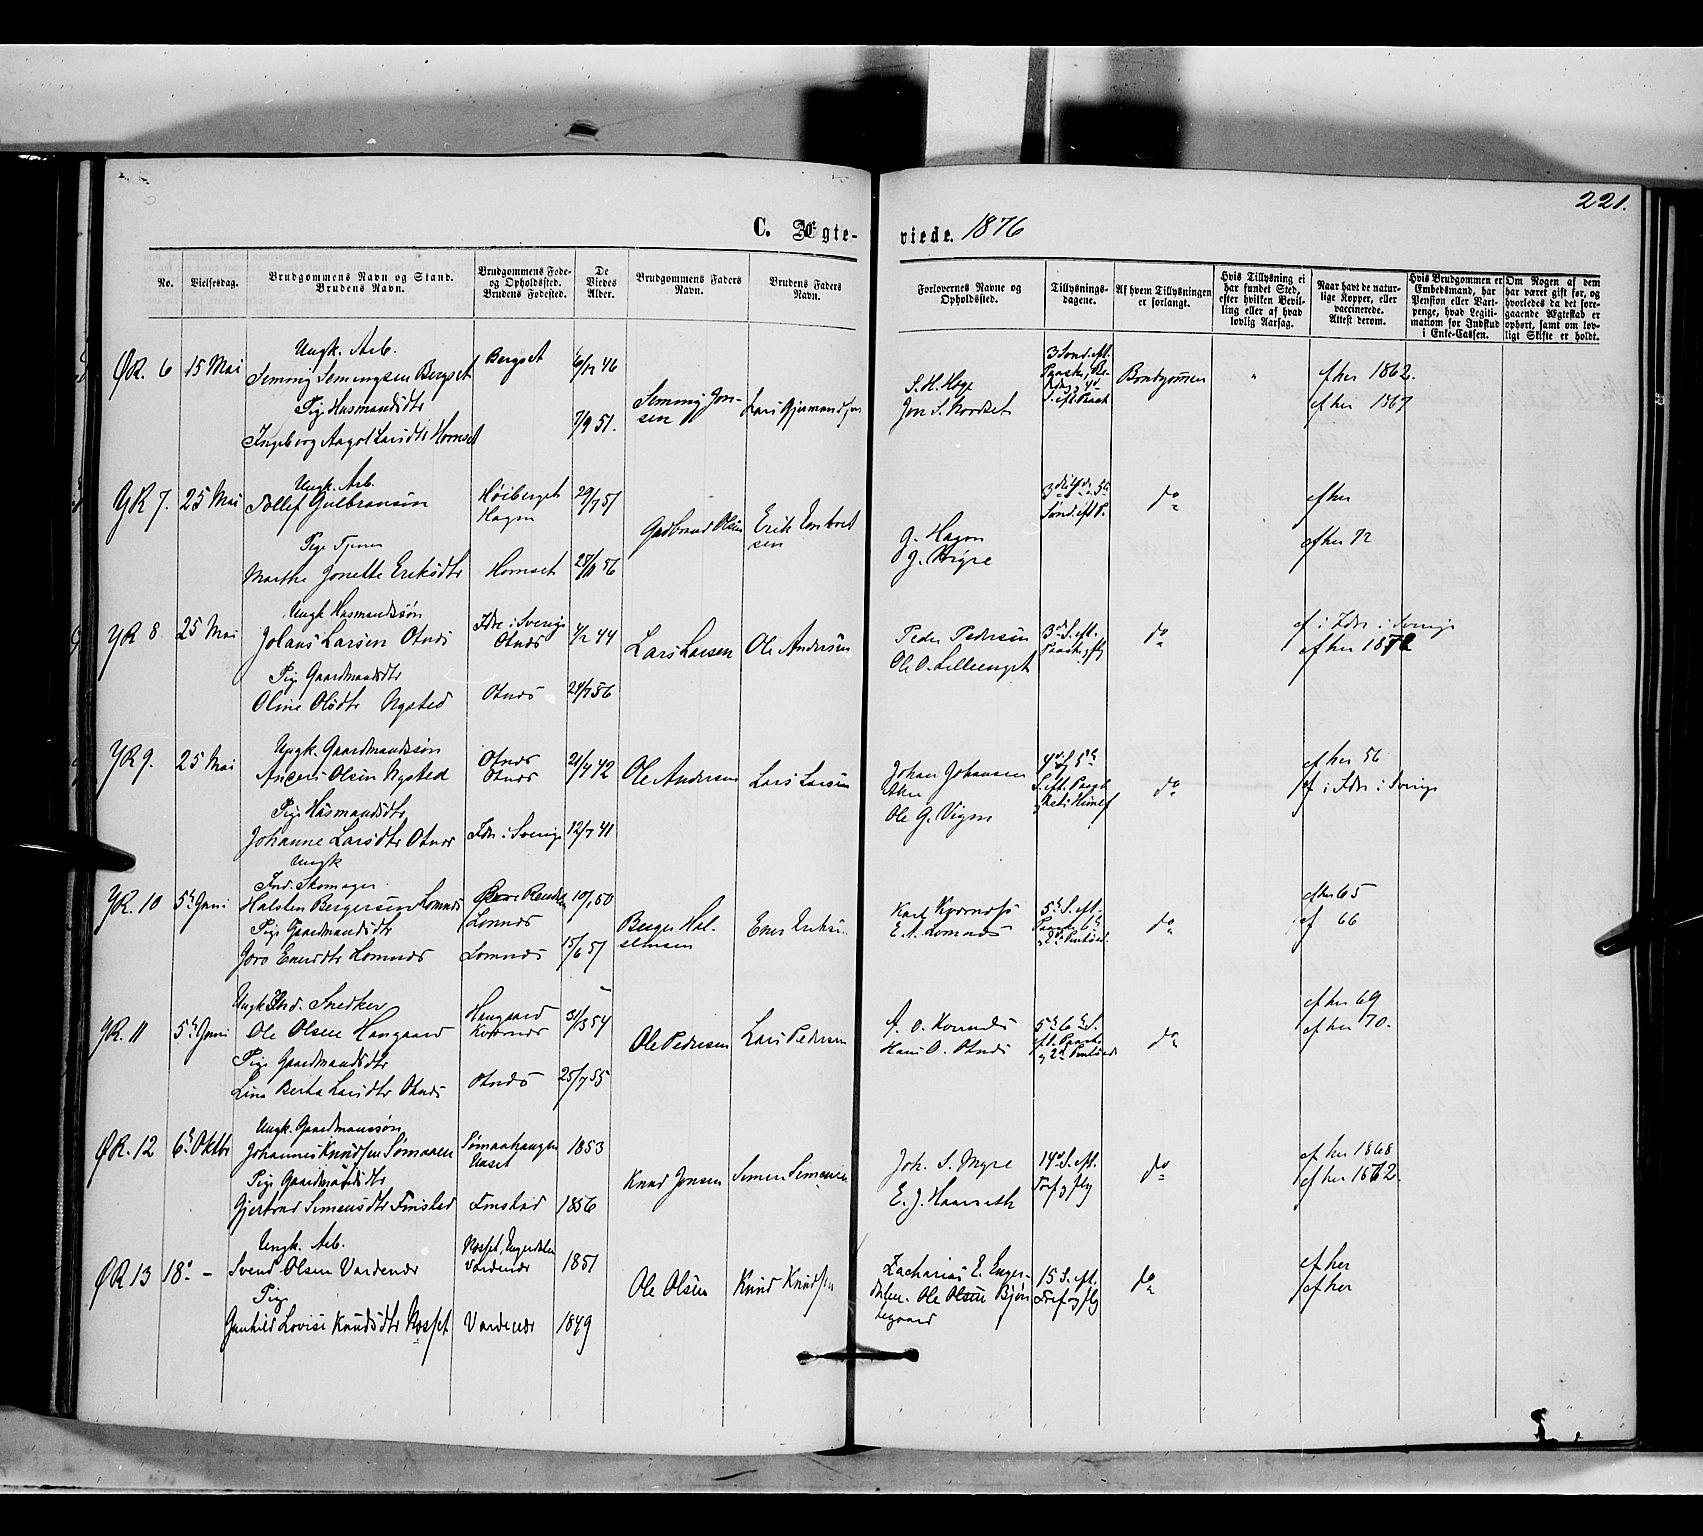 221.
C. Ægte- viede. 1876
No.
Vielsesdag.
Brudgommens Navn og Stand.
Brudens Navn.
Brudgommens Føde-
og Opholdssted.
Brudens Fødested.
De
Viedes
Alder.
Brudgommens Faders
Navn.
Brudens Faders
Navn.
Forlovernes Navne og
Opholdssted.
Tillysnings-
dagene.
Af hvem Tillysningen
er forlangt.
Hvis Tillysning ei
har fundet Sted,
efter hvilken Bevil-
ling eller af hvad
lovlig Aarsag.
Naar havt de natur-
lige Kopper, eller
vaccinerede.
Attest derom.
Hvis Brudgommen er
Embedsmand, har
Pension eller Vart-
penge, hvad Legiti-
mation for Indskud
i Enke-Cassen.
Om Nogen af dem
har været gift før, og
hvorledes da det fore-
gaaende Ægteskab er
ophørt, samt om lov-
ligt Skifte er holdt.
ØR. 6
15 Mai
Ungk. Arb.
Semmig Semmigsen Bergset
Pige Husmandsdtr
Ingeborg Aagot Larsdtr Hornset
Bergset
46
7/9 51.
Semmig Jon-
sen
Lars Gjermundsen
S. H. Hage
Jon S. Nordset
3 Sønd. eft.
Brudgommen
efter 1862.
efter 1867
YR 7.
25 Mai
Ungk. Arb.
Tollef Gulbransen
Pige Tjener
Marthe Jonette Eriksdtr
Høiberget
Hagen
Hornset
29/7 51
56
Gudbrand Olsen
Erik Embret
sen
J. Hagen
J. Myre
Sønd. eft P.
do
efter
efter 72
YR 8
25 Mai
Ungk Husmandssøn
Johans Larsen Otnes
Pige Gaardmandsdtr
Oline Olsdtr Nysted
Idre i Sverige
Otnes
Otnes
44
24/7 56
Lars Larsen
Ole Andersen
Peder Pedersen
Ole O. Lilleenget
3 S. eft.
do
ef i Idre i Sverige
efter 1872
YR 9.
25 Mai
Ungk. Gaardmandssøn
Anders Olsen Nysted
Pige Husmandsdtr
Johanne Larsdtr Otnes
Otnes
Otnes
Idre i Sverige
42
12/7 41
Ole Andersen
Lars Larsen
Johan Johansen
Ole G. Vigen
do
efter 56
ef i Idre i Sverige
YR. 10
5 Juni
Ungk
Ind. Skomager
Halsten Bergersen Lomnes
Pige Gaardmandsdtr
Goro Enersdtr Lomnes
Øvre Rendalen
Lomnes
Lomnes
50
15/6 51
Berger Hal-
stensen
Ener Eriksen
Karl Kværnæs
E. A. Lomnes
5 S. eft.
do
efter 65
ef 66
YR. 11
5 Juni
Ungk Ind. Snedker
Ole Olsen Haugaard
Pige Gaardmandsdtr
Lina Berta Larsdtr Otnes
Haugaard
Kværnæs
Otnes
31/3 54
25/7 55
Ole Pedersen
Lars Pedersen
A. O. Kværnæs
Hans O. Otnes
do
efter 69
efter 70.
ØR. 12
6 Oktbr
Ungk. Gaardmanssøn
Johannes Knudsen Sømaaen
Pige Gaardmandsdtr
Gjertrud Simensdtr Finstad
Sømaahaugen
Unset
Finstad
1853
1856
Knud Jonsen
Simen Simensen
Joh. S. Myre
E. J. Haarseth
14 S. eft.
Tref og flg
do
efter 1868
efter 1862.
ØR 13
18 -
Ungk. Arb.
Svend Olsen Vardenær
Pige
Gunhild Lovise Knudsdtr Rosset
Rosset, Engerdalen
Vardenær
Vardenær
1851
1849
Ole Olsen
Knud Knudsen
Zacharias E. Enger-
dalen. Ole Olsen Bjør
15 S. eft.
Tref og flg
do
efter
efter